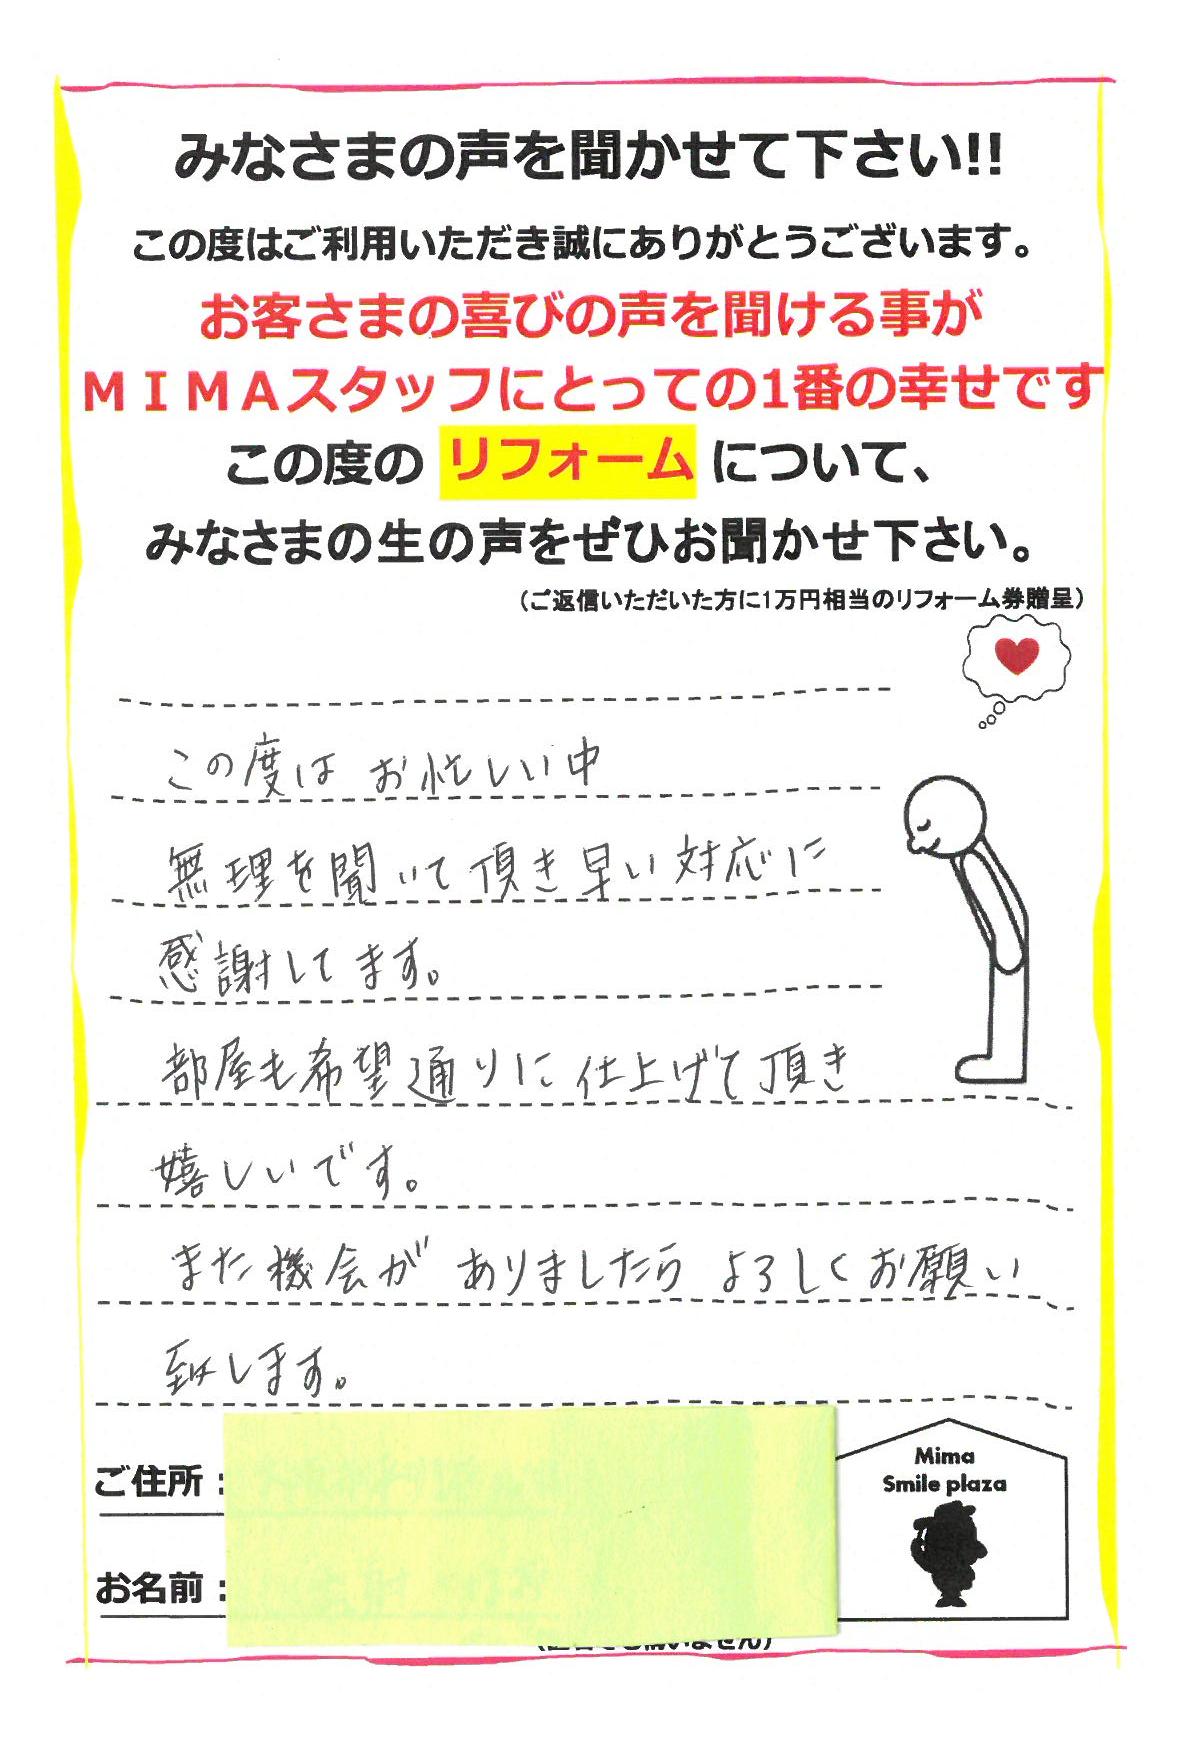 みなさまの声を聞かせて下さい!!
この度はご利用いただき誠にありがとうございます。
お客さまの喜びの声を聞ける事が
ＭＩＭＡスタッフにとっての1番の幸せです
この度の リフォーム について、
みなさまの生の声をぜひお聞かせ下さい。
（ご返信いただいた方に1万円相当のリフォーム券贈呈）
この度は お忙しい中
無理を聞いて頂き早い対応に
感謝してます。
部屋も希望通りに仕上げて頂き
嬉しいです。
また機会が ありましたら よろしくお願い
致します。
Mima
Smile plaza
ご住所：
お名前：